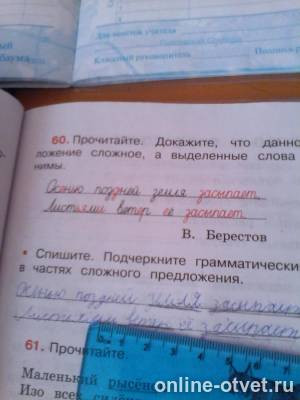 Для заметок учителя
Классный руководитель
60. Прочитайте. Докажите, что данно
ложение сложное, а выделенные слова
нимы.
Осенью поздней земля засыпает,
Листьями ветер её засыпает.
В. Берестов
• Спишите. Подчеркните грамматически
в частях сложного предложения.
Осенью поздней земля засыпает
листьями ветер её засыпает
61. Прочитайте.
Маленький рысёно
Изо всех
online-otvet.ru